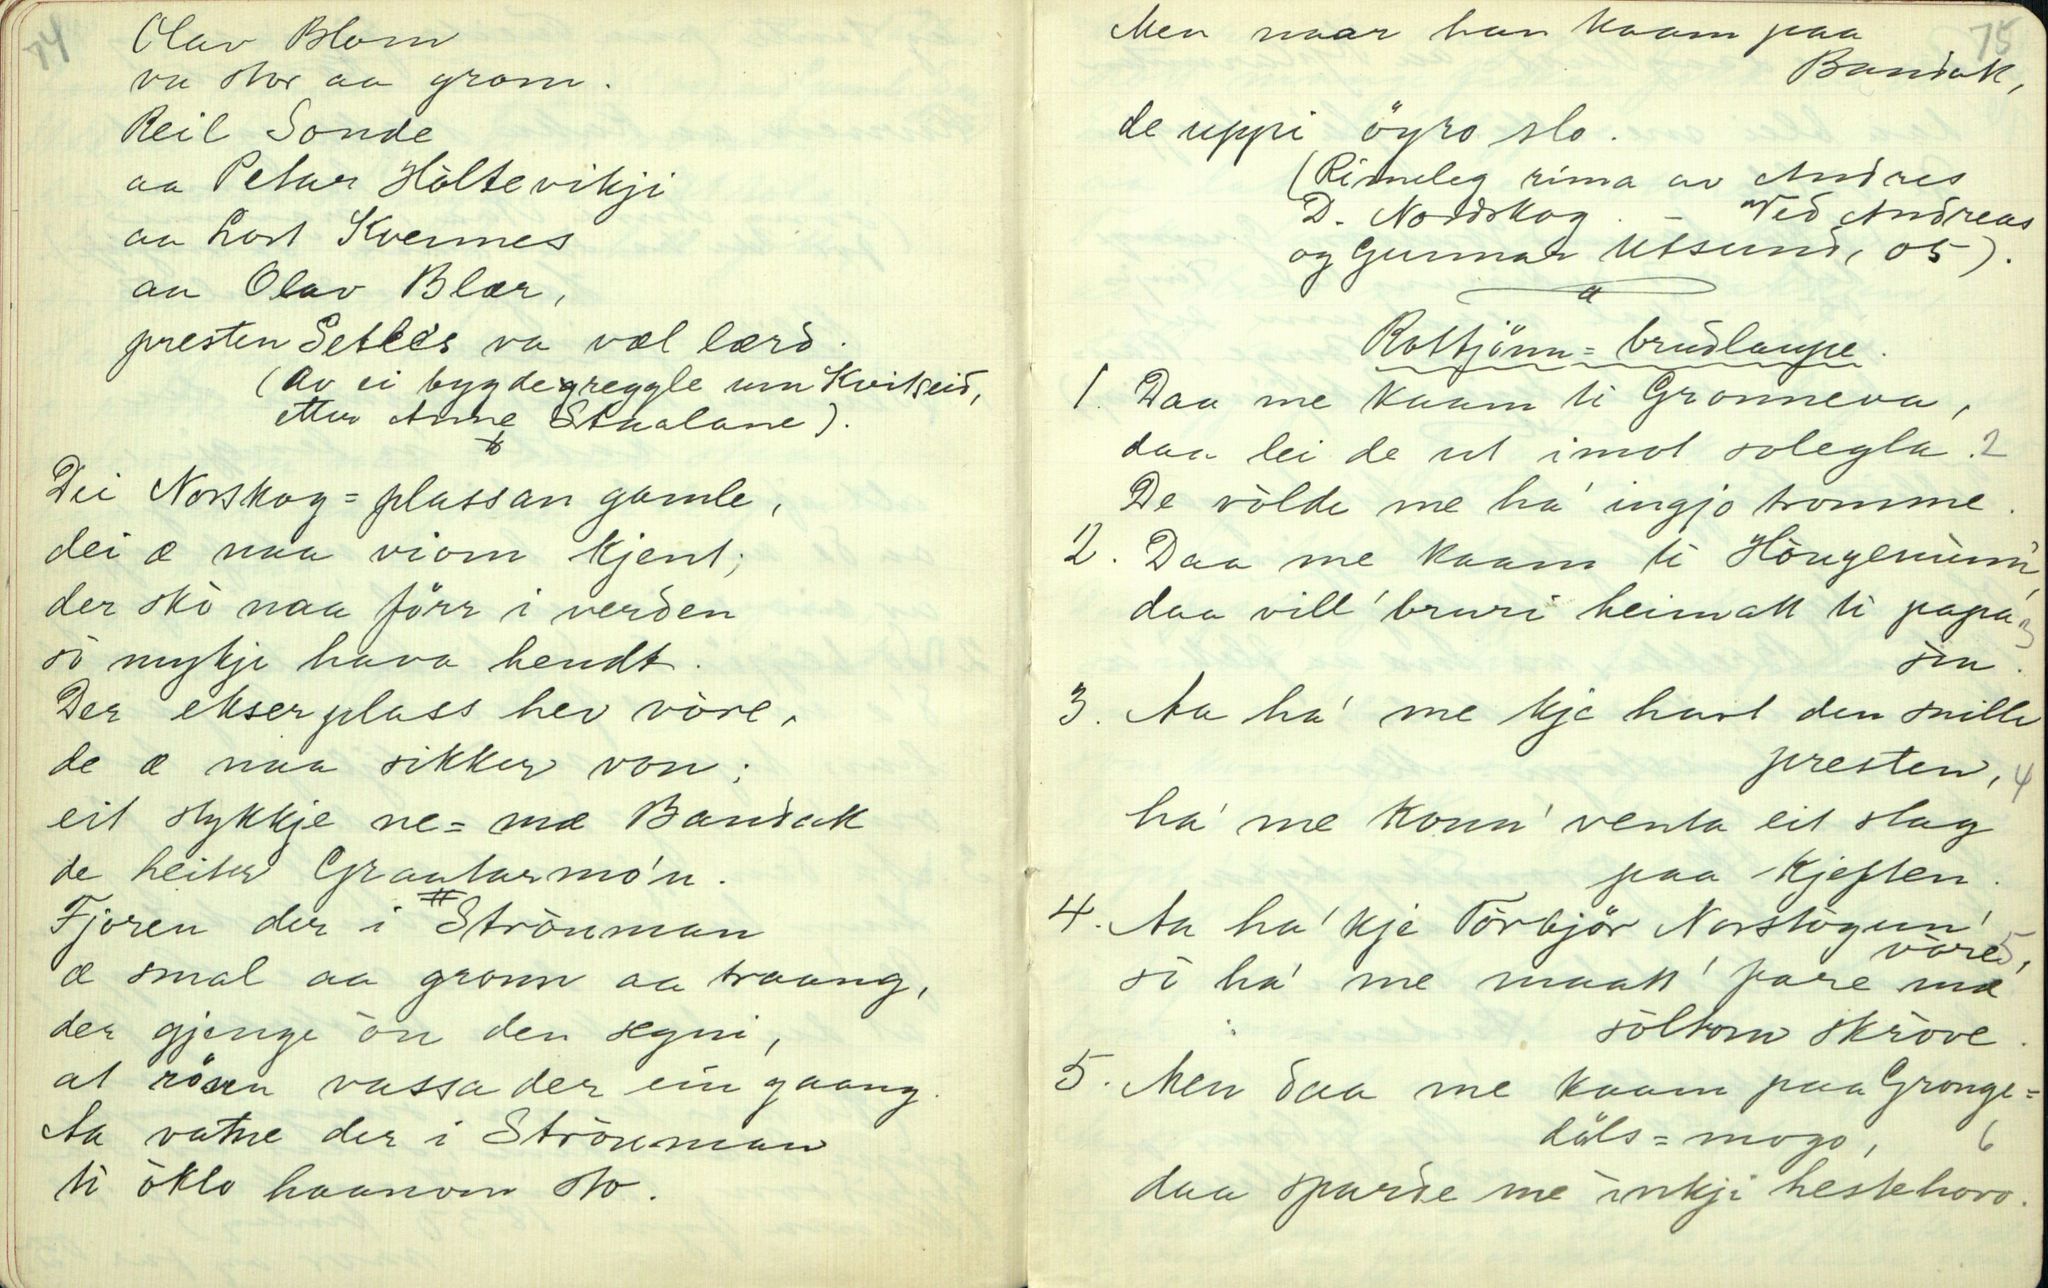 74
Olav Blom
va stor aa grom.
Reil Sonde
aa Petar Hòltevikji
aa Lort Kvennes
aa Olav Blær,
presten va væl lærd.
(Av ei bygdegreggle um Kvitseid,
etter Anne Staalane).
Dei Norskog=plassan gamle,
dei æ naa viom kjent;
der skò naa förr i verden
sò mykje hava hendt.
Der ekserplass hev vòre,
de æ naa sikker von;
eit stykkje ne=mæ Bandak
de heiter Graatarmo'n.
Fjoren der i Stròuman
æ smal aa gronn aa traang,
der gjenge òn den segni,
at röven vassa der ein gaang.
Aa vatne der i Stròuman
ti òklo haanom sto.
75
Men naar han kaam paa
Bandak,
de uppi öyro slo.
(Rimeleg rima av Andres
D. Nordskog. – Ved Andreas
og Gunnar Utsund, 05).
Rottjönn=brudlaupe.
1. Daa me kaam ti Gronneva,
daa lei de ut imot solegla. 2
De vòlde me ha' ingjo tromme.
2. Daa me kaam ti
daa vill' bruri heimatt ti papa 3
sin.
3. Aa ha' me kje havt den snille
presten, 4
ha' me konn' venta eit slag
paa kjeften.
4. Aa ha' kje Tòrbjör Norstògun'
vòre, 5
sò ha' me maatt' fare mæ
sòltom skròve.
5. Men daa me kaam paa Gronge=
dåls=mogo, 6
daa sparde me inkji hestehovo.